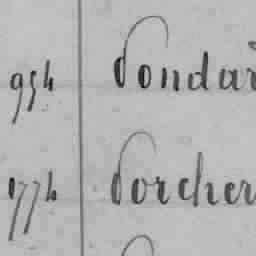 954 Vondar
1774 Vorcher